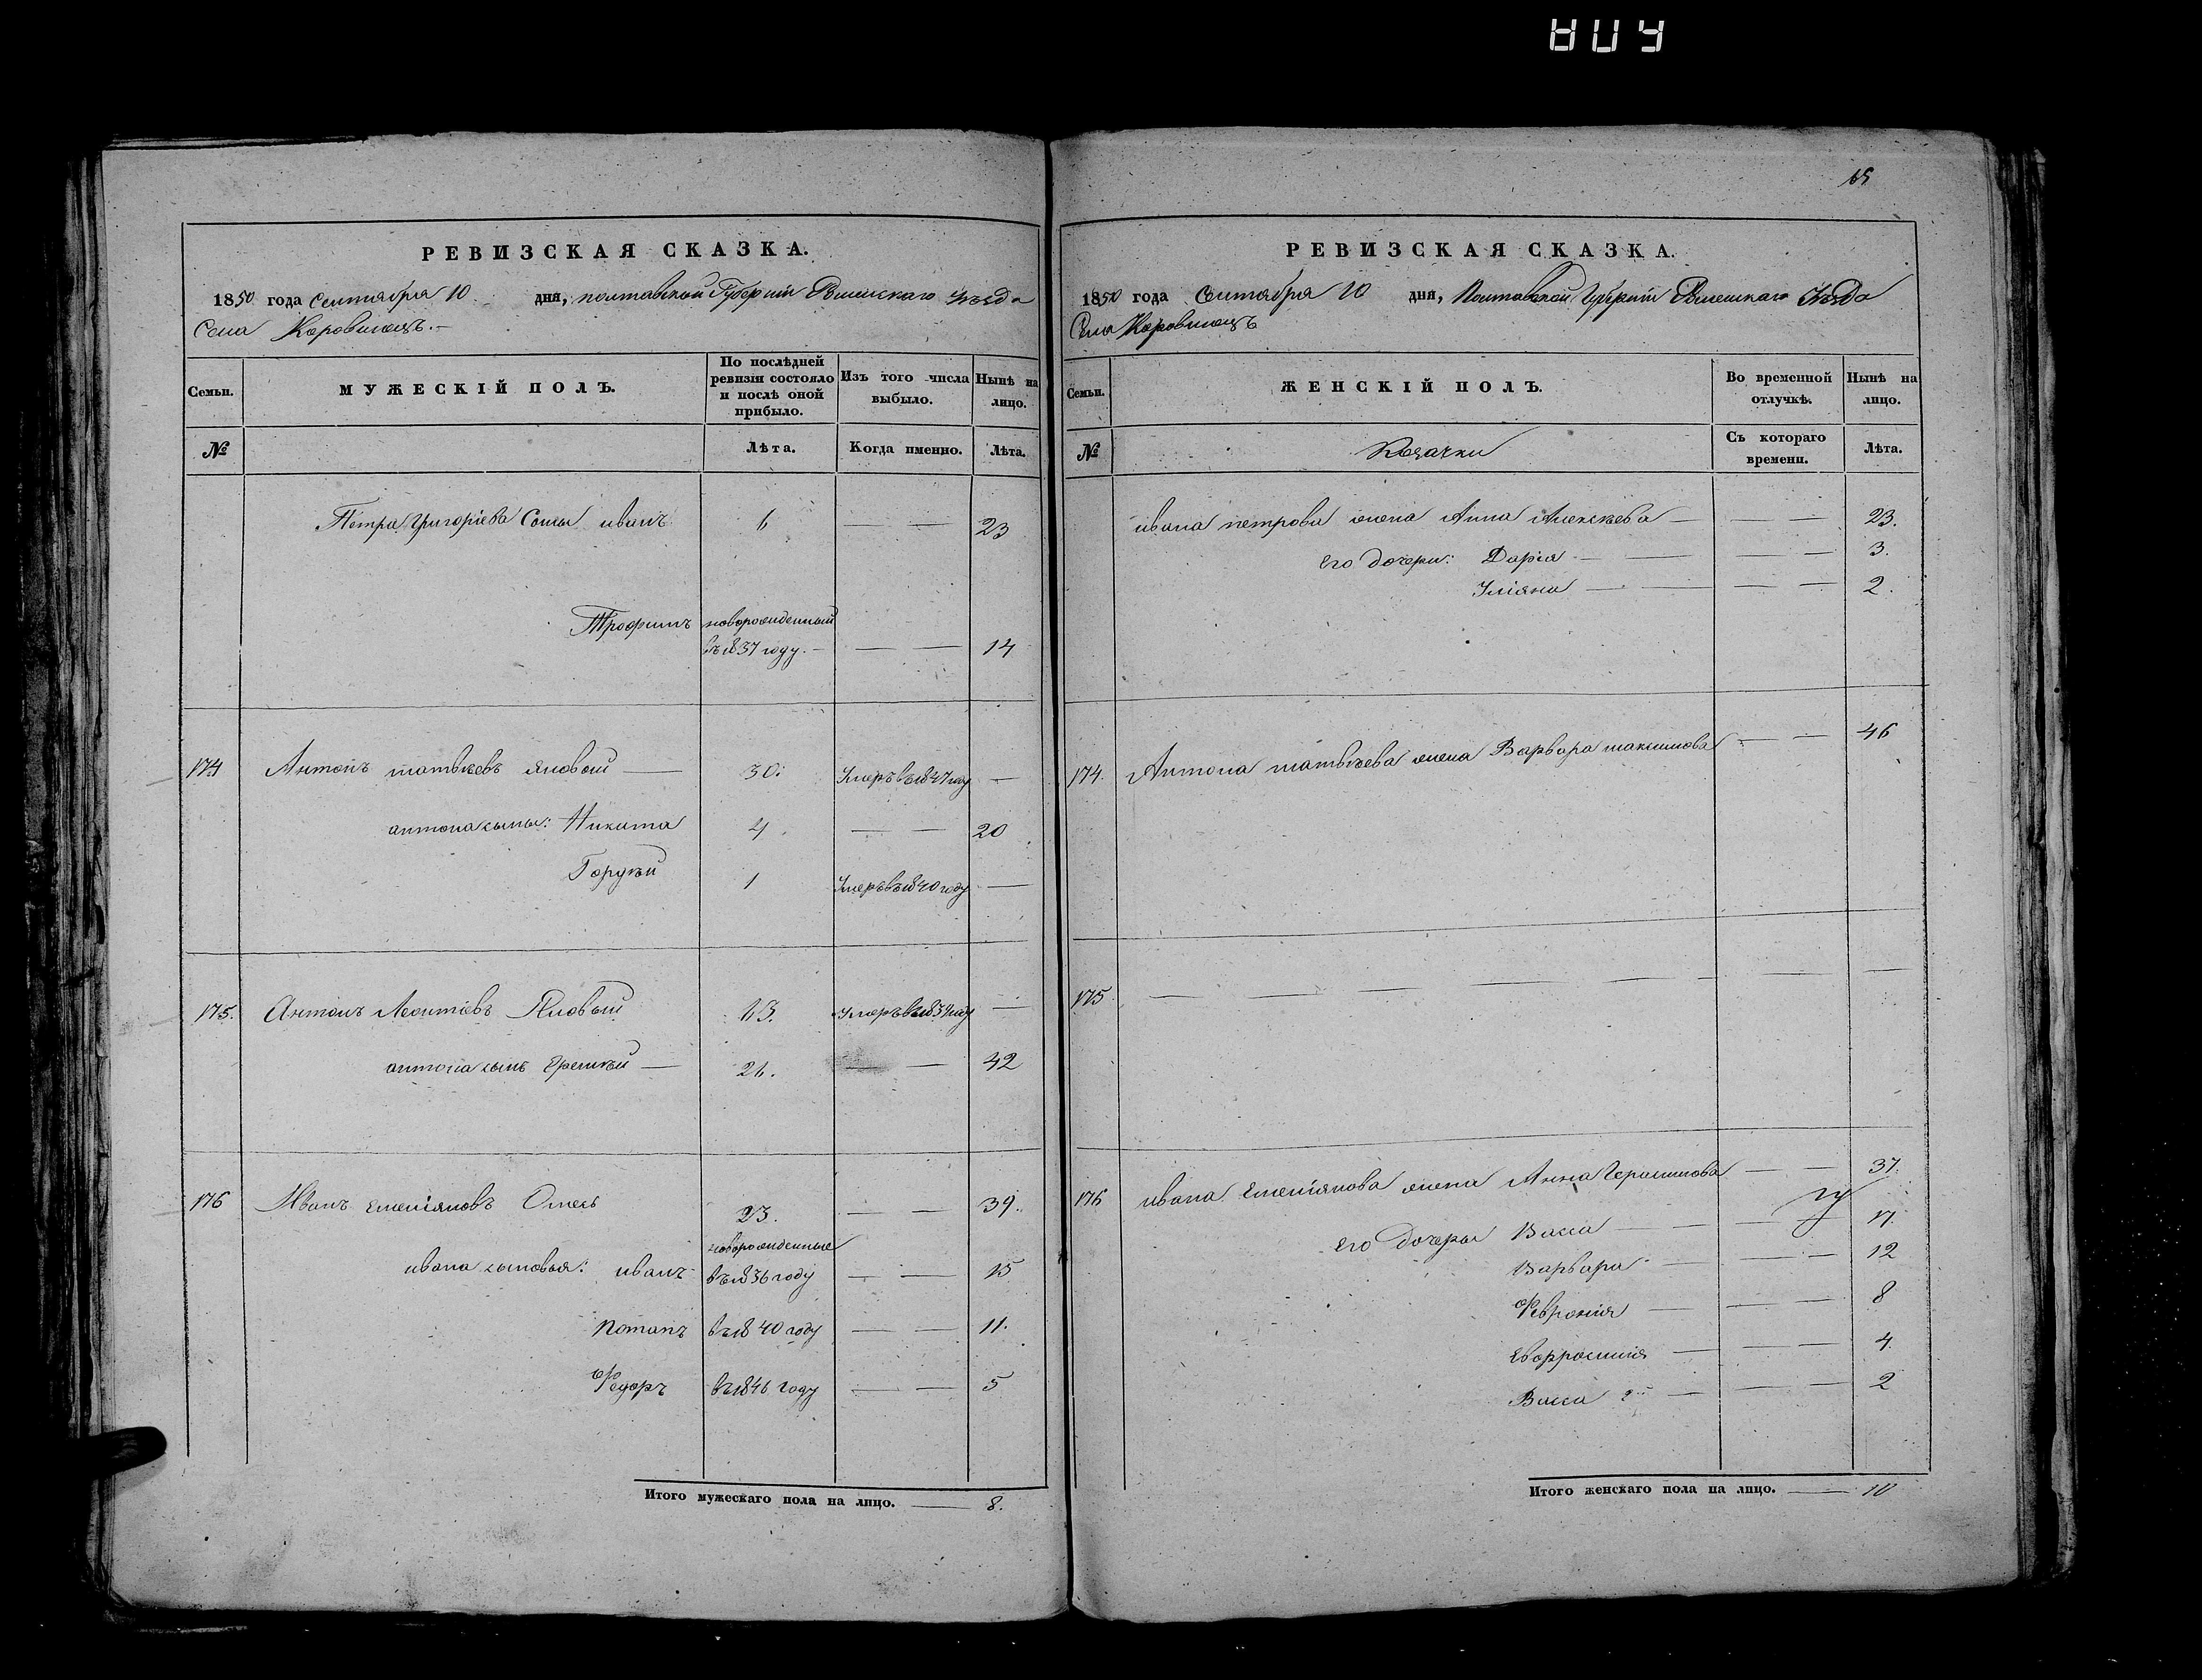 65
РЕВИЗСКАЯ СКАЗКА.
1850 года Сентября 10 дня, полтавской Губерніи Роменскаго Уѣзда
Села Коровинецъ.
Семьи. МУЖЕСКІЙ ПОЛЪ. По послѣдней ревизіи состояло и послѣ оной прибыло. Изъ того числа выбыло. Нынѣ на лицо.
№ Лѣта. Когда именно. Лѣта.
Петра Григоріева Сыны иванъ 6 — — 23
Трофимъ новорожденный
въ 1837 году. — — — 14
174 Антонъ матвѣевъ яловый — 30. Умеръ въ 1847 году —
антона сыны: Никита 4. — — 20
Гордѣй 1 Умеръ въ 1840 году —
175. Антонъ Леонтіевъ Яловый 63. Умеръ въ 1834 году —
антона сынъ Еремѣй — 26. — — 42
176 Иванъ Емеліяновъ Омесь 23. — — 39.
новорожденные
ивана сыновья: иванъ въ 1836 году — — 15
Потапъ въ 1840 году — — 11.
Федоръ въ 1846 году — — 5
Итого мужескаго пола на лицо. — 8.
РЕВИЗСКАЯ СКАЗКА.
1850 года Сентября 10 дня, Полтавской Губерніи Роменскаго Уѣзда
Села Коровинецъ
Семьи. ЖЕНСКІЙ ПОЛЪ. Во временной отлучкѣ. Нынѣ на лицо.
№ Козачки Съ котораго времени. Лѣта.
ивана петрова жена Анна Алексѣева — — — 23.
Его дочери: Дарія — — — — 3.
Уліяна — — — — 2.
174. Антона матвѣева жена Варвара максимова — — 46
175 — — — — — — — —
176 ивана Емеліянова жена Анна Герасимова — — 37.
Его дочеры Васса — — — 17.
Варвара — — — 12
Феврония — — — 8
Евфросинія — — — 4.
Васса 2я — — — 2
Итого женскаго пола на лицо. — 10